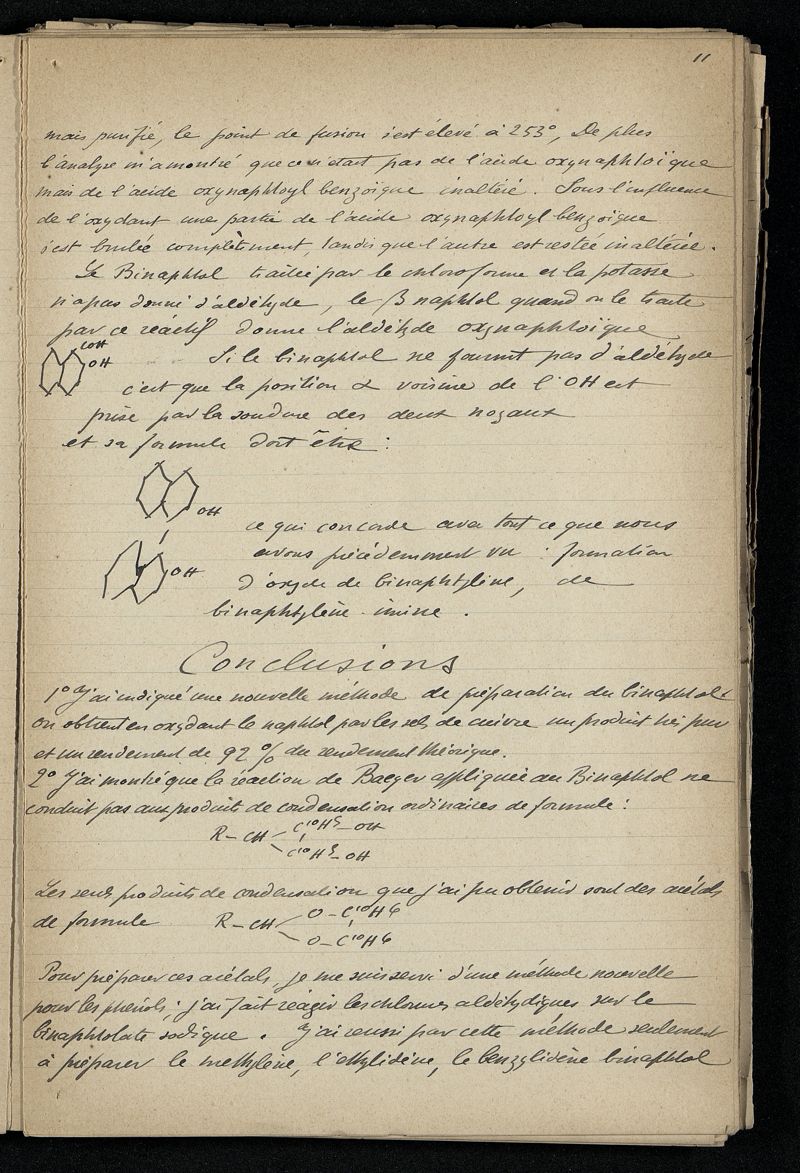 11
mais purifié, le point de fusion s'est élevé à 253°, De plus
l'analyse m'a montré que ce n'était pas de l'acide oxynaphtoïque
mais de l'acide oxynaphtoyl benzoïque inaltéré. Sous l'influence
de l'oxydant une partie de l'acide oxynaphtoyl benzoïque
s'est brulée complètement, tandis que l'autre est restée inaltérée.
Le Binaphtol traité par le chloroforme et la potasse
n'a pas donné d'aldéhyde, le β naphtol quand on le traite
par ce réactif donne l'aldéhyde oxynaphtoïque
COH
OH
Si le binaphtol ne fournit pas d'aldéhyde
c'est que la position α voisine de l'OH est
prise par la soudure des deux noyaux
et sa formule doit être :
OH
ce qui concorde avec tout ce que nous
avons précédemment vu : formation
OH
d'oxyde de binaphtylène, de
binaphtylène-imine.
Conclusions
1° J'ai indiqué une nouvelle méthode de préparation du binaphtol
on obtient en oxydant le naphtol par les sels de cuivre un produit très pur
et un rendement de 92 % du rendement théorique.
2° J'ai montré que la réaction de Baeyer appliquée au Binaphtol ne
conduit pas aux produits de condensation ordinaires de formule :
R - CH C¹⁰H⁵ - OH
C¹⁰H⁵ - OH
Les seuls produits de condensation que j'ai pu obtenir sont des acétals
de formule R - CH O - C¹⁰H⁶
O - C¹⁰H⁶
Pour préparer ces acétals, je me suis servi d'une méthode nouvelle
pour les phénols : j'ai fait réagir les chlorures aldéhydiques sur le
binaphtolate sodique. J'ai réussi par cette méthode seulement
à préparer le methylène, l'ethylidène, le benzylidène binaphtol